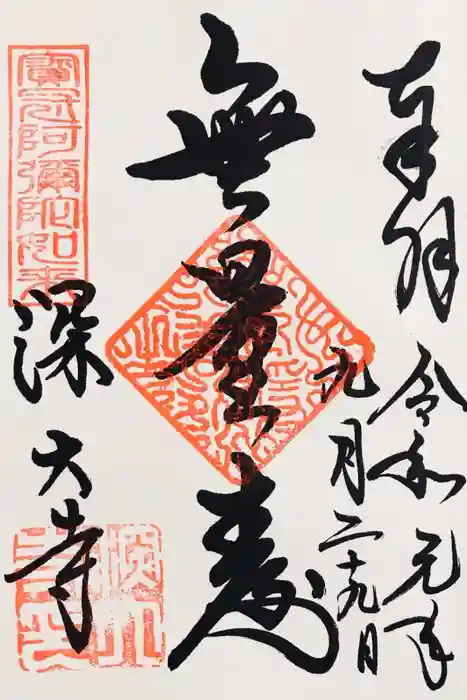 奉拝 令和元年
九月二十九日
無量壽
寶冠阿彌陀如来
深大寺